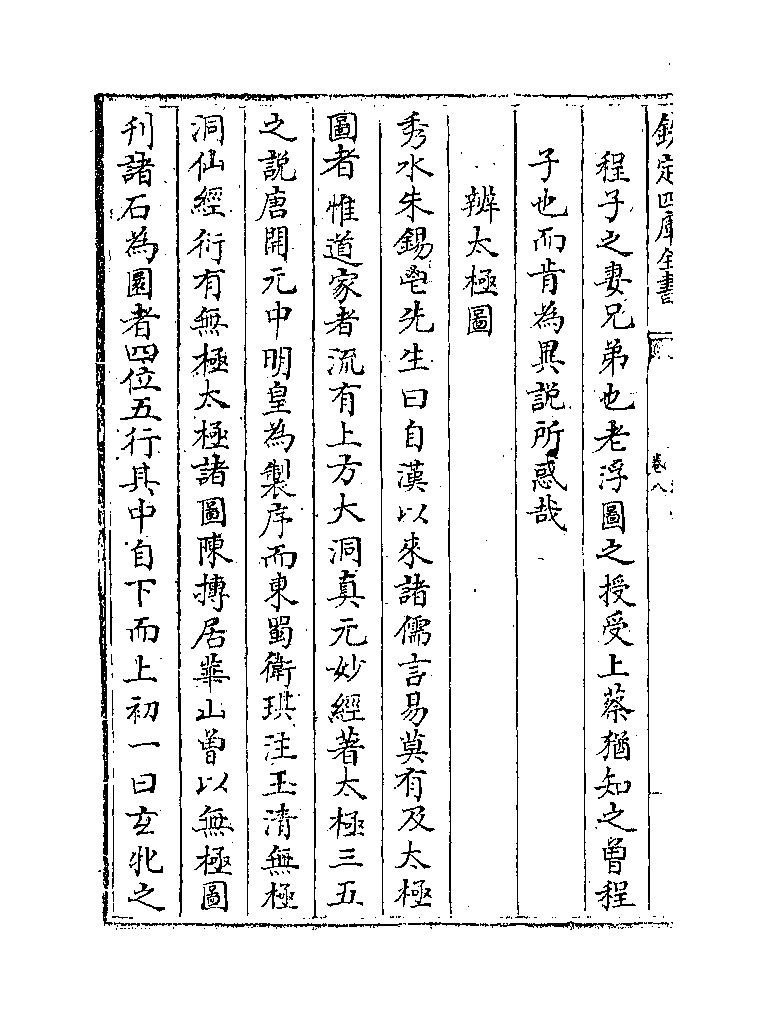 欽定四庫全書
卷八
程子之妻兄弟也老浮圖之授受上蔡猶知之曾程
子也而肯為異説所惑哉
辨太極圖
秀水朱錫鬯先生曰自漢以來諸儒言易莫有及太極
圖者惟道家者流有上方大洞真元妙經著太極三五
之説唐開元中明皇為製序而東蜀衛琪注玉清無極
洞仙經衍有無極太極諸圖陳摶居華山曾以無極圖
刋諸石為圜者四位五行其中自下而上初一曰玄牝之